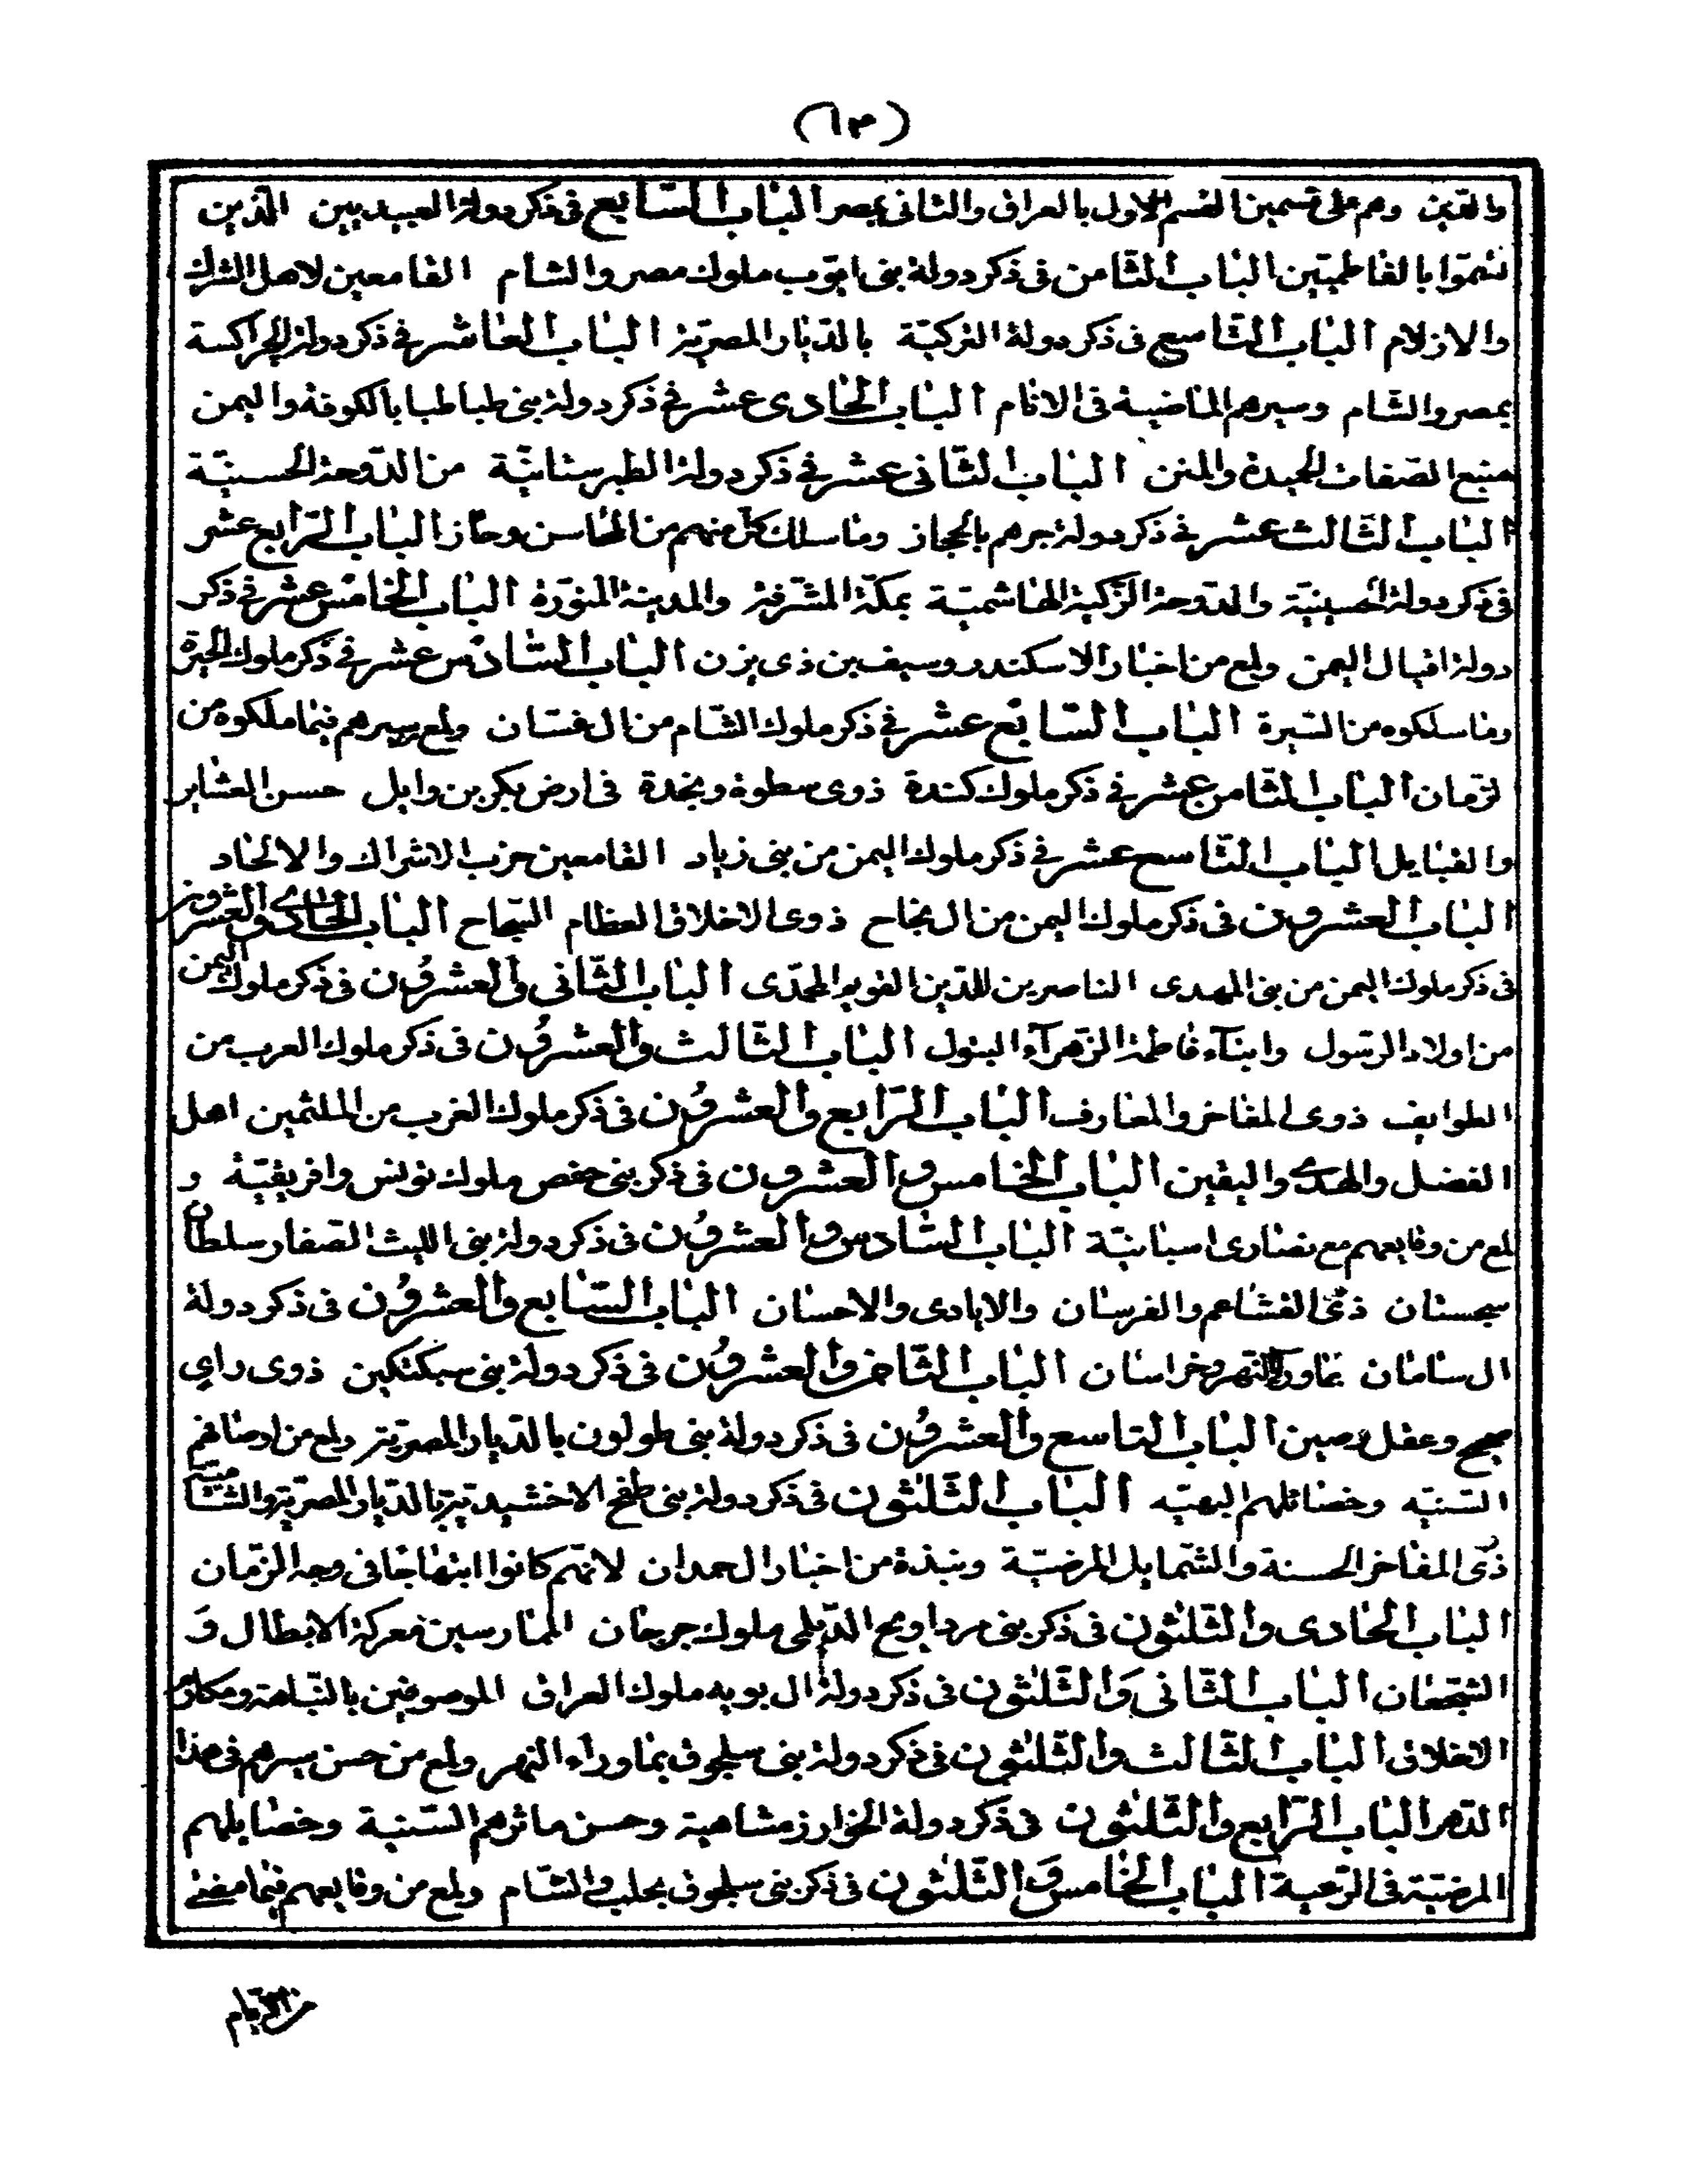 (١٣)
والدين وهم على قسمين القسم الاول بالعراق والثانى بمصر الباب السابع فى ذكر دولة العبيديين الذين
تسموا بالفاطميين الباب الثامن فى ذكر دولة بنى ايوب ملوك مصر والشام القامعين لاهل الشرك
والازلام الباب التاسع فى ذكر دولة التركية بالديار المصرية الباب العاشر فى ذكر دولة الجراكسة
بمصر والشام وسيرهم الماضية فى الانام الباب الحادى عشر فى ذكر دولة بنى طباطبا بالكوفة واليمن
منبع الصفات الحميدة والمنن الباب الثانى عشر فى ذكر دولة الطبرستانية من الدوحة الحسنية
الباب الثالث عشر فى ذكر دولة جرهم بالحجاز وما سلك كل منهم من المحاسن وحاز الباب الرابع عشر
فى ذكر دولة الحسينية والدوحة الزكية الهاشمية بمكة المشرفة والمدينة المنورة الباب الخامس عشر فى ذكر
دولة اقيال اليمن ولمع من اخبار الاسكندر وسيف بن ذى يزن الباب السادس عشر فى ذكر ملوك الحيرة
وما سلكوه من السيرة الباب السابع عشر فى ذكر ملوك الشام من ال غسان ولمع سيرهم فيما ملكوه من
لزمان الباب الثامن عشر فى ذكر ملوك كندة ذوى سطوة ونجدة فى ارض بكر بن وايل حسن العشاير
والقبايل الباب التاسع عشر فى ذكر ملوك اليمن من بنى زياد القامعين حزب الاشراك والالحاد
الباب العشرون فى ذكر ملوك اليمن من ال نجاح ذوى الاخلاق العظام السجاح الباب الحادى والعشرون
فى ذكر ملوك اليمن من بنى المهدى الناصرين للدين القويم المحمدى الباب الثانى والعشرون فى ذكر ملوك اليمن
من اولاد الرسول وابناء فاطمة الزهراء البتول الباب الثالث والعشرون فى ذكر ملوك العرب من
الطوايف ذوى المفاخر والمعارف الباب الرابع والعشرون فى ذكر ملوك الغرب من الملثمين اهل
الفضل والهدى واليقين الباب الخامس والعشرون فى ذكر بنى حفص ملوك تونس وافريقية و
لمع من وقايعهم مع نصارى اسبانية الباب السادس والعشرون فى ذكر دولة بنى الليث الصفار سلطان
سجستان ذى القشاعم والفرسان والايادى والاحسان الباب السابع والعشرون فى ذكر دولة
ال سامان بماوراء النهر وخراسان الباب الثامن والعشرون فى ذكر دولة بنى سبكتكين ذوى راى
صحيح وعقل رصين الباب التاسع والعشرون فى ذكر دولة بنى طولون بالديار المصرية ولمع من اوصافهم
السنيه وخصائلهم البهيه الباب الثلثون فى ذكر دولة بنى طغج الاخشيدية بالديار المصرية والشامية
ذى المفاخر الحسنة والشمايل المرضية ونبذة من اخبار ال حمدان لانهم كانوا ابتهاجا فى وجه الزمان
الباب الحادى والثلثون فى ذكر بنى مرداويح الديلمى ملوك جرجان الممارسين معركة الابطال و
الشجعان الباب الثانى والثلثون فى ذكر دولة ال بويه ملوك العراق الموصوفين بالنباهة ومكارم
الاخلاق الباب الثالث والثلثون فى ذكر دولة بنى سلجوق بماوراء النهر ولمع من حسن سيرهم فى هذا
الدهر الباب الرابع والثلثون فى ذكر دولة الخوارزمشاهية وحسن ماثرهم السنية وخصايلهم
المرضية فى الرعية الباب الخامس والثلثون فى ذكر بنى سلجوق بحلب والشام ولمع من وقايعهم فيما مضى
من الايام